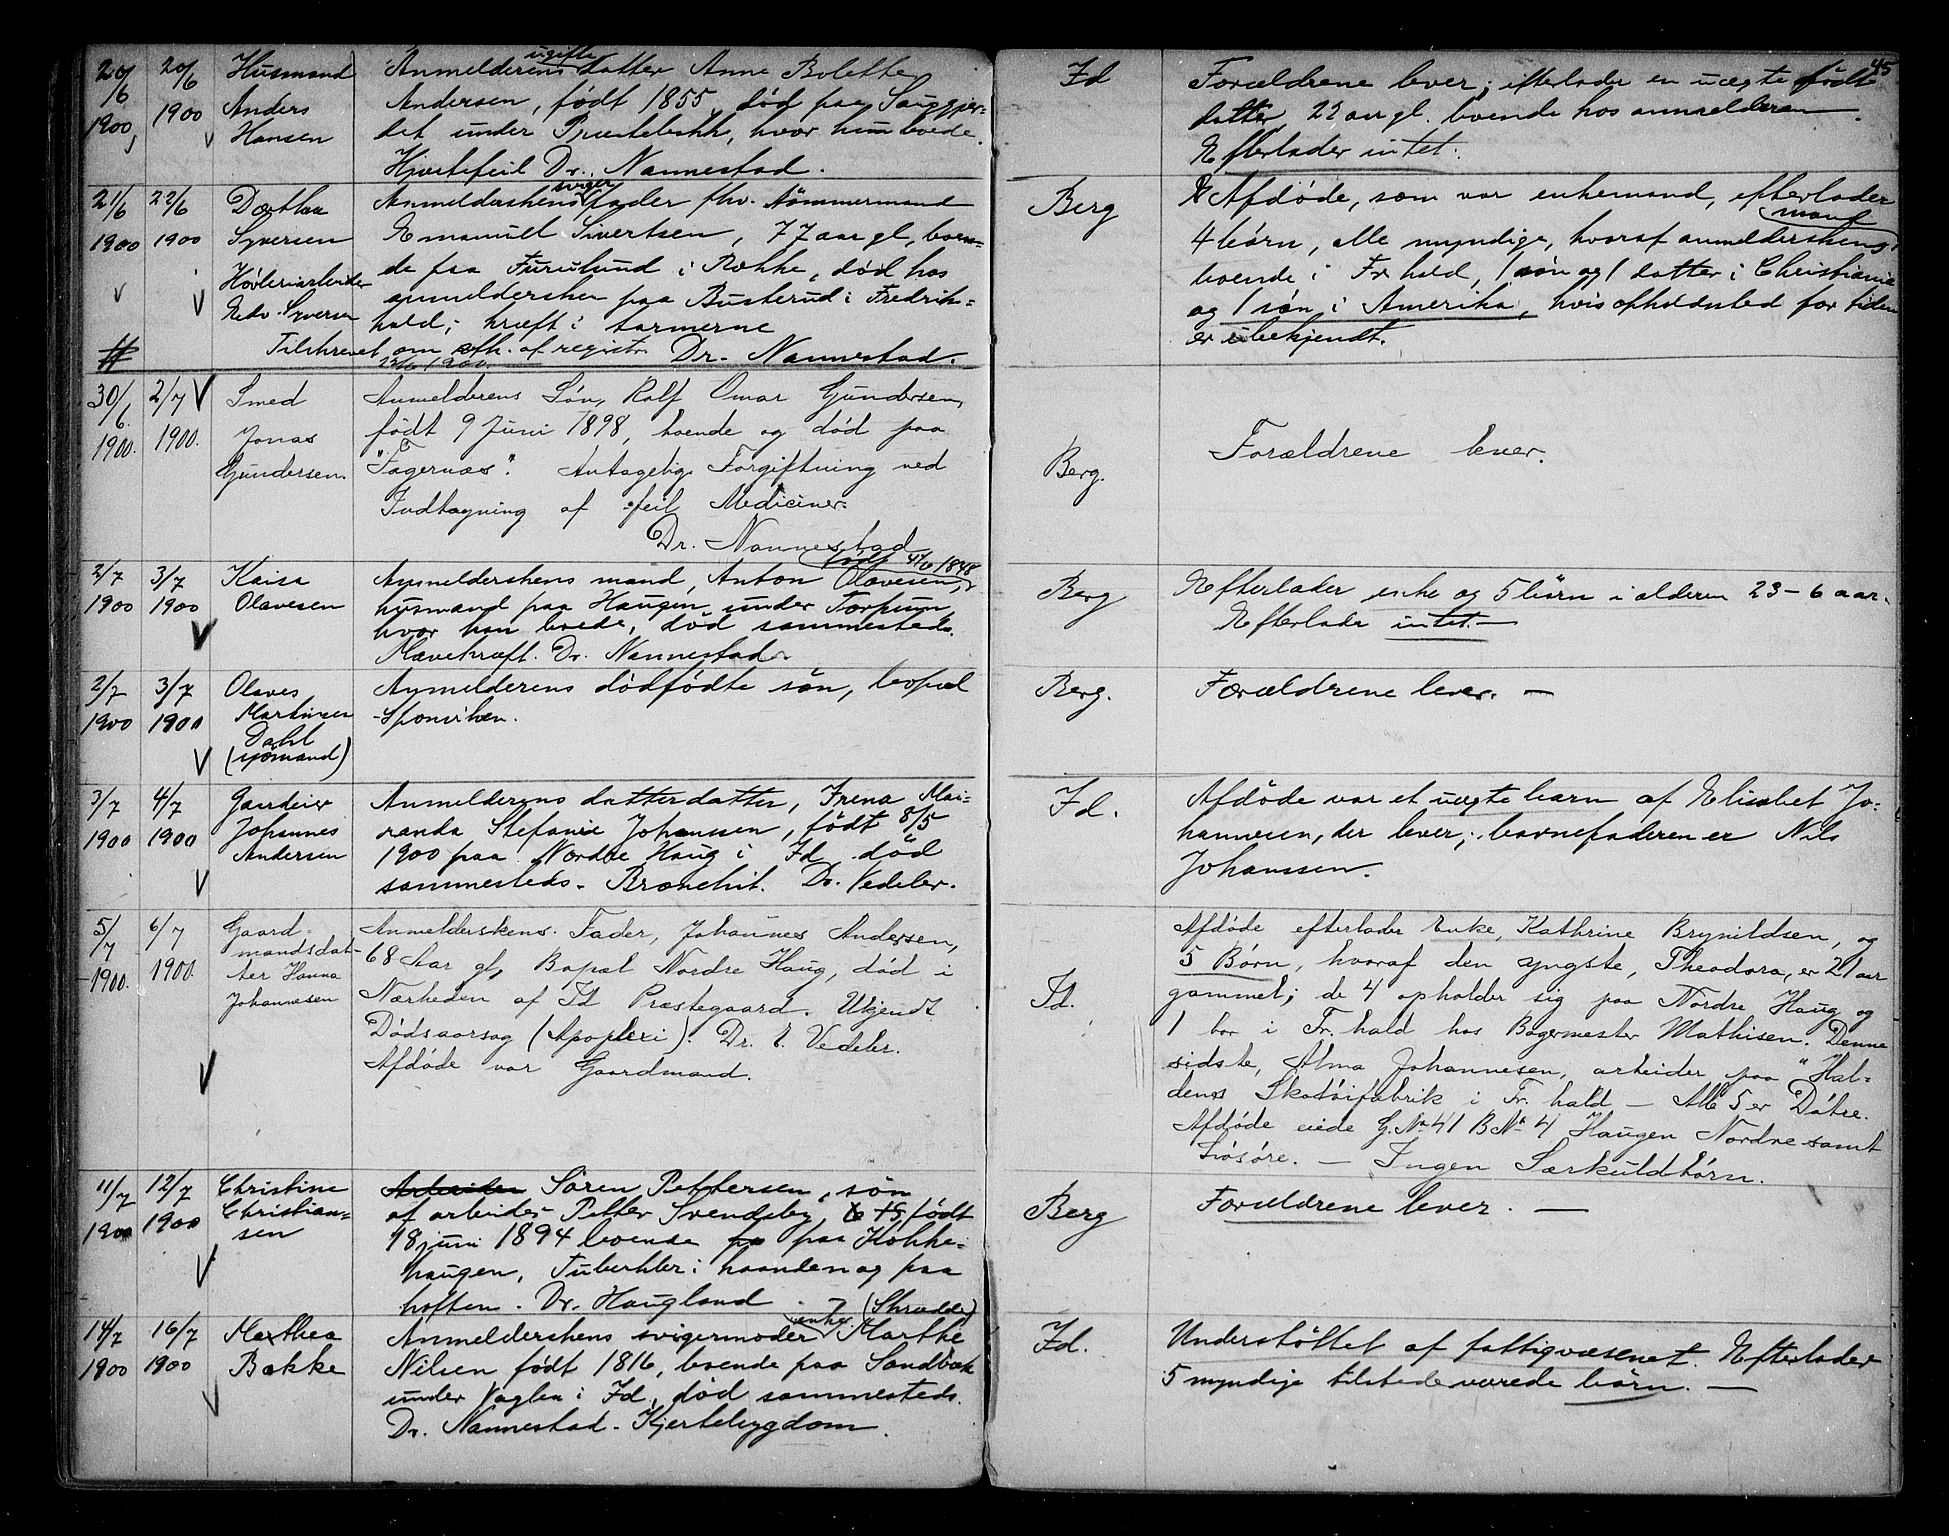 45
20/6 20/6 Husmand Anmelderens ugifte datter Anne Bolette
1900 1900 Anders Andersen, født 1855, død paa Sauggjer-
Hansen det under Præstebakk, hvor hun boede.
Hjertefeil Dr. Nannestad.
Id Forældrene lever; efterlader en uægte født
datter 22 aar gl. boende hos anmelderen.
Efterlader intet.
21/6 22/6 Dorthea Anmelderskens svigerfader fhv. tømmermand
1900 1900 Syversen Emanuel Sivertsen, 77 aar gl, boen-
Høvleriarbeider de paa Furulund i Rokke, død hos
Edv. Syversen anmeldersken paa Busterud i Fredriks-
hald; kræft i tarmerne
Tilskrevet om afh. af registr. Dr. Nannestad.
23/6 1900.
Berg Afdøde, som var enkemand, efterlader
4 børn, alle myndige, hvoraf anmelderskens mand
boende i Fr.hald, 1 søn og 1 datter i Christiania
og 1 søn i Amerika, hvis opholdssted for tiden
er ubekjendt.
30/6 2/7 Smed Anmelderens Søn, Rolf Omar Gundersen,
1900. 1900. Jonas født 9 Juni 1898, boende og død paa
Gundersen. "Fagernæs". Antagelig Forgiftning ved
Indtagning af feil Mediciner.
Dr. Nannestad
Berg. Forældrene lever.
2/7 3/7 Kaisa Anmelderskens mand, Anton Olavesen, født 4/10 1848,
1900 1900 Olavesen husmand paa Haugen under Torpum,
hvor han boede, død sammesteds.
Mavekræft. Dr. Nannestad.
Berg Efterlader enke og 5 børn i alderen 23-6 aar.
Efterlade intet.—
2/7 3/7 Olaves Anmelderens dødfødte søn, bopæl
1900 1900 Martinsen Sponviken.
Dahl
(sjømand)
Berg. Forældrene lever. —
3/7 4/7 Gaardeier Anmelderens datterdatter, Frena Mari-
1900 1900 Johannes randa Stefanie Johanssen, født 8/5
Andersen 1900 paa Nordre Haug i Id, død
sammesteds. Bronchit. Dr. Vedeler.
Id. Afdøde var et uægte barn af Elisabet Jo-
hannesen, der lever; barnefaderen er Nils
Johanssen.
5/7 6/7 Gaard- Anmelderskens Fader, Johannes Andersen,
1900. 1900. mandsdat- 68 Aar gl, Bopæl Nordre Haug, død i
ter Hanna Nærheden af Id Præstegaard. Ukjendt
Johannesen Dødsaarsag (Apoplexi). Dr. E. Vedeler.
Afdøde var Gaardmand.
Id. Afdøde efterlader Enke, Kathrine Brynildsen, og
5 Børn, hvoraf den yngste, Theodora, er 21 aar
gammel; de 4 opholder sig paa Nordre Haug og
1 bor i Fr.hald hos Bagermester Mathisen. Denne
sidste, Alma Johannesen, arbeider paa "Hal-
dens Skotøifabrik i Fr.hald — Alle 5 er Døtre.
Afdøde eiede G.No 41 B No 4 Haugen Nordre samt
Løsøre. — Ingen Særkuldbørn.
11/7 12/7 Christine Arbeider Søren Pettersen, søn
1900 1900 Christian- af arbeider Petter Svendsby, født
sen 18 juni 1894 boende paa Kokke-
haugen, Tuberkler i haanden og paa
hoften. Dr. Haugland.
Berg Forældrene lever. —
14/7 16/7 Marthea Anmelderskens svigermoder enke (Skrædder) Marthe
1900 1900 Bakke Nilsen født 1816, boende paa Sandbæk
under Vaglen i Id, død sammesteds.
Dr. Nannestad. Hjertesygdom.
Id. Understøttet af fattigvæsenet. Efterlader
5 myndige tilstedeværede børn. —